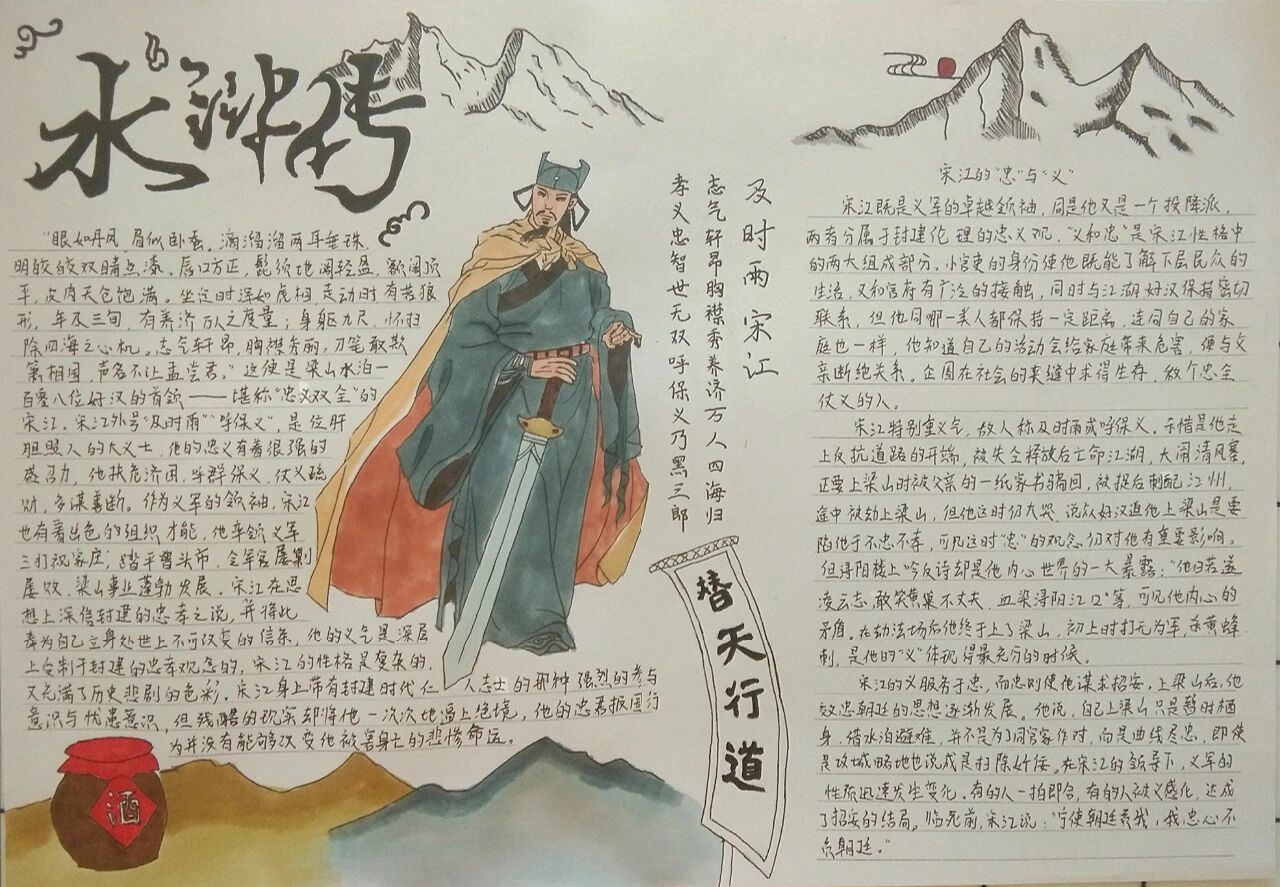 水浒传
"眼如丹凤,眉似卧蚕。滴溜溜两耳垂珠,
明皎皎双睛点漆。唇口方正,髭须地阁轻盈,额阔顶
平,皮肉天仓饱满。坐定时浑如虎相,走动时有若狼
形,年及三旬,有养济万人之度量;身躯九尺,怀扫
除四海之心机。志气轩昂,胸襟秀丽,刀笔敢欺
萧相国,声名不让孟尝君。"这便是梁山水泊一
百零八位好汉的首领——堪称"忠义双全"的
宋江。宋江外号"及时雨""呼保义",是位肝
胆照人的大义士,他的忠义有着很强的
感召力,他扶危济困,率群保义,仗义疏
财,多谋善断。作为义军的领袖,宋江
也有着出色的组织才能,他率领义军
三打祝家庄;踏平曾头市,令军官屡剿
屡败,梁山事业蓬勃发展。宋江在思
想上深信封建的忠孝之说,并将此
奉为自己立身处世上不可改变的信条,他的义气是深层
上受制于封建的忠孝观念的,宋江的性格是复杂的,
又充满了历史悲剧的色彩。宋江身上带有封建时代仁人志士的那种强烈的参与
意识与忧患意识,但残酷的现实却将他一次次地逼上绝境,他的忠君报国行
为并没有能够改变他被害身亡的悲惨命运。
酒
及时雨宋江
志气轩昂胸襟秀养济万人四海归
孝义忠智世无双呼保义乃黑三郎
替天行道
宋江的"忠"与"义"
宋江既是义军的卓越领袖,同是他又是一个投降派,
两者分属于封建伦理的忠义观,"义和忠"是宋江性格中
的两大组成部分。小官吏的身份使他既能了解下层民众的
生活,又和官府有广泛的接触,同时与江湖好汉保持密切
联系,但他同哪一类人都保持一定距离,连同自己的家
庭也一样,他知道自己的活动会给家庭带来危害,便与父
亲断绝关系。企图在社会的夹缝中求得生存,做个忠全
仗义的人。
宋江特别重义气,故人称及时雨或呼保义。杀惜是他走
上反抗道路的开端,被失全释放后亡命江湖,大闹清风寨,
正要上梁山时被父亲的一纸家书骗回,被捉后刺配江州,
途中被劫上梁山,但他这时仍大哭,说众好汉逼他上梁山是要
陷他于不忠不孝,可见这时"忠"的观念仍对他有重要影响。
但浔阳楼上吟反诗却是他内心世界的一大暴露:"他日若遂
凌云志,敢笑黄巢不丈夫,血染浔阳江口"等,可见他内心的
矛盾。在劫法场后他终于上了梁山,初上时打无为军,杀黄蜂
刺,是他的"义"体现得最充分的时候。
宋江的义服务于忠,而忠则使他谋求招安,上梁山后,他
效忠朝廷的思想逐渐发展。他说,自己上梁山只是暂时栖
身,借水泊避难,并不是为了同官家作对,而是曲线尽忠,即使
是攻城略地也说成是扫除奸佞。在宋江的领导下,义军的
性质迅速发生变化。有的人一拍即合,有的人被义感化,达成
了招安的结局。临死前,宋江说:"宁使朝廷负我,我忠心不
负朝廷。"